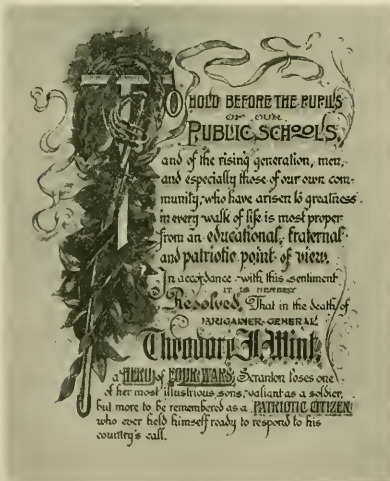 TO HOLD BEFORE THE PUPILS
OF OUR
PUBLIC SCHOOLS,
and of the rising generation, men,
and especially those of our own com-
munity, who have arisen to greatness
in every walk of life is most proper
from an educational, fraternal
and patriotic point of view.
In accordance with this sentiment
IT IS HEREBY
Resolved, That in the death of
BRIGADIER-GENERAL
Theodore J. Wint,
a HERO of FOUR WARS, Scranton loses one
of her most illustrious sons, valiant as a soldier,
but more to be remembered as a PATRIOTIC CITIZEN
who ever held himself ready to respond to his
country's call.